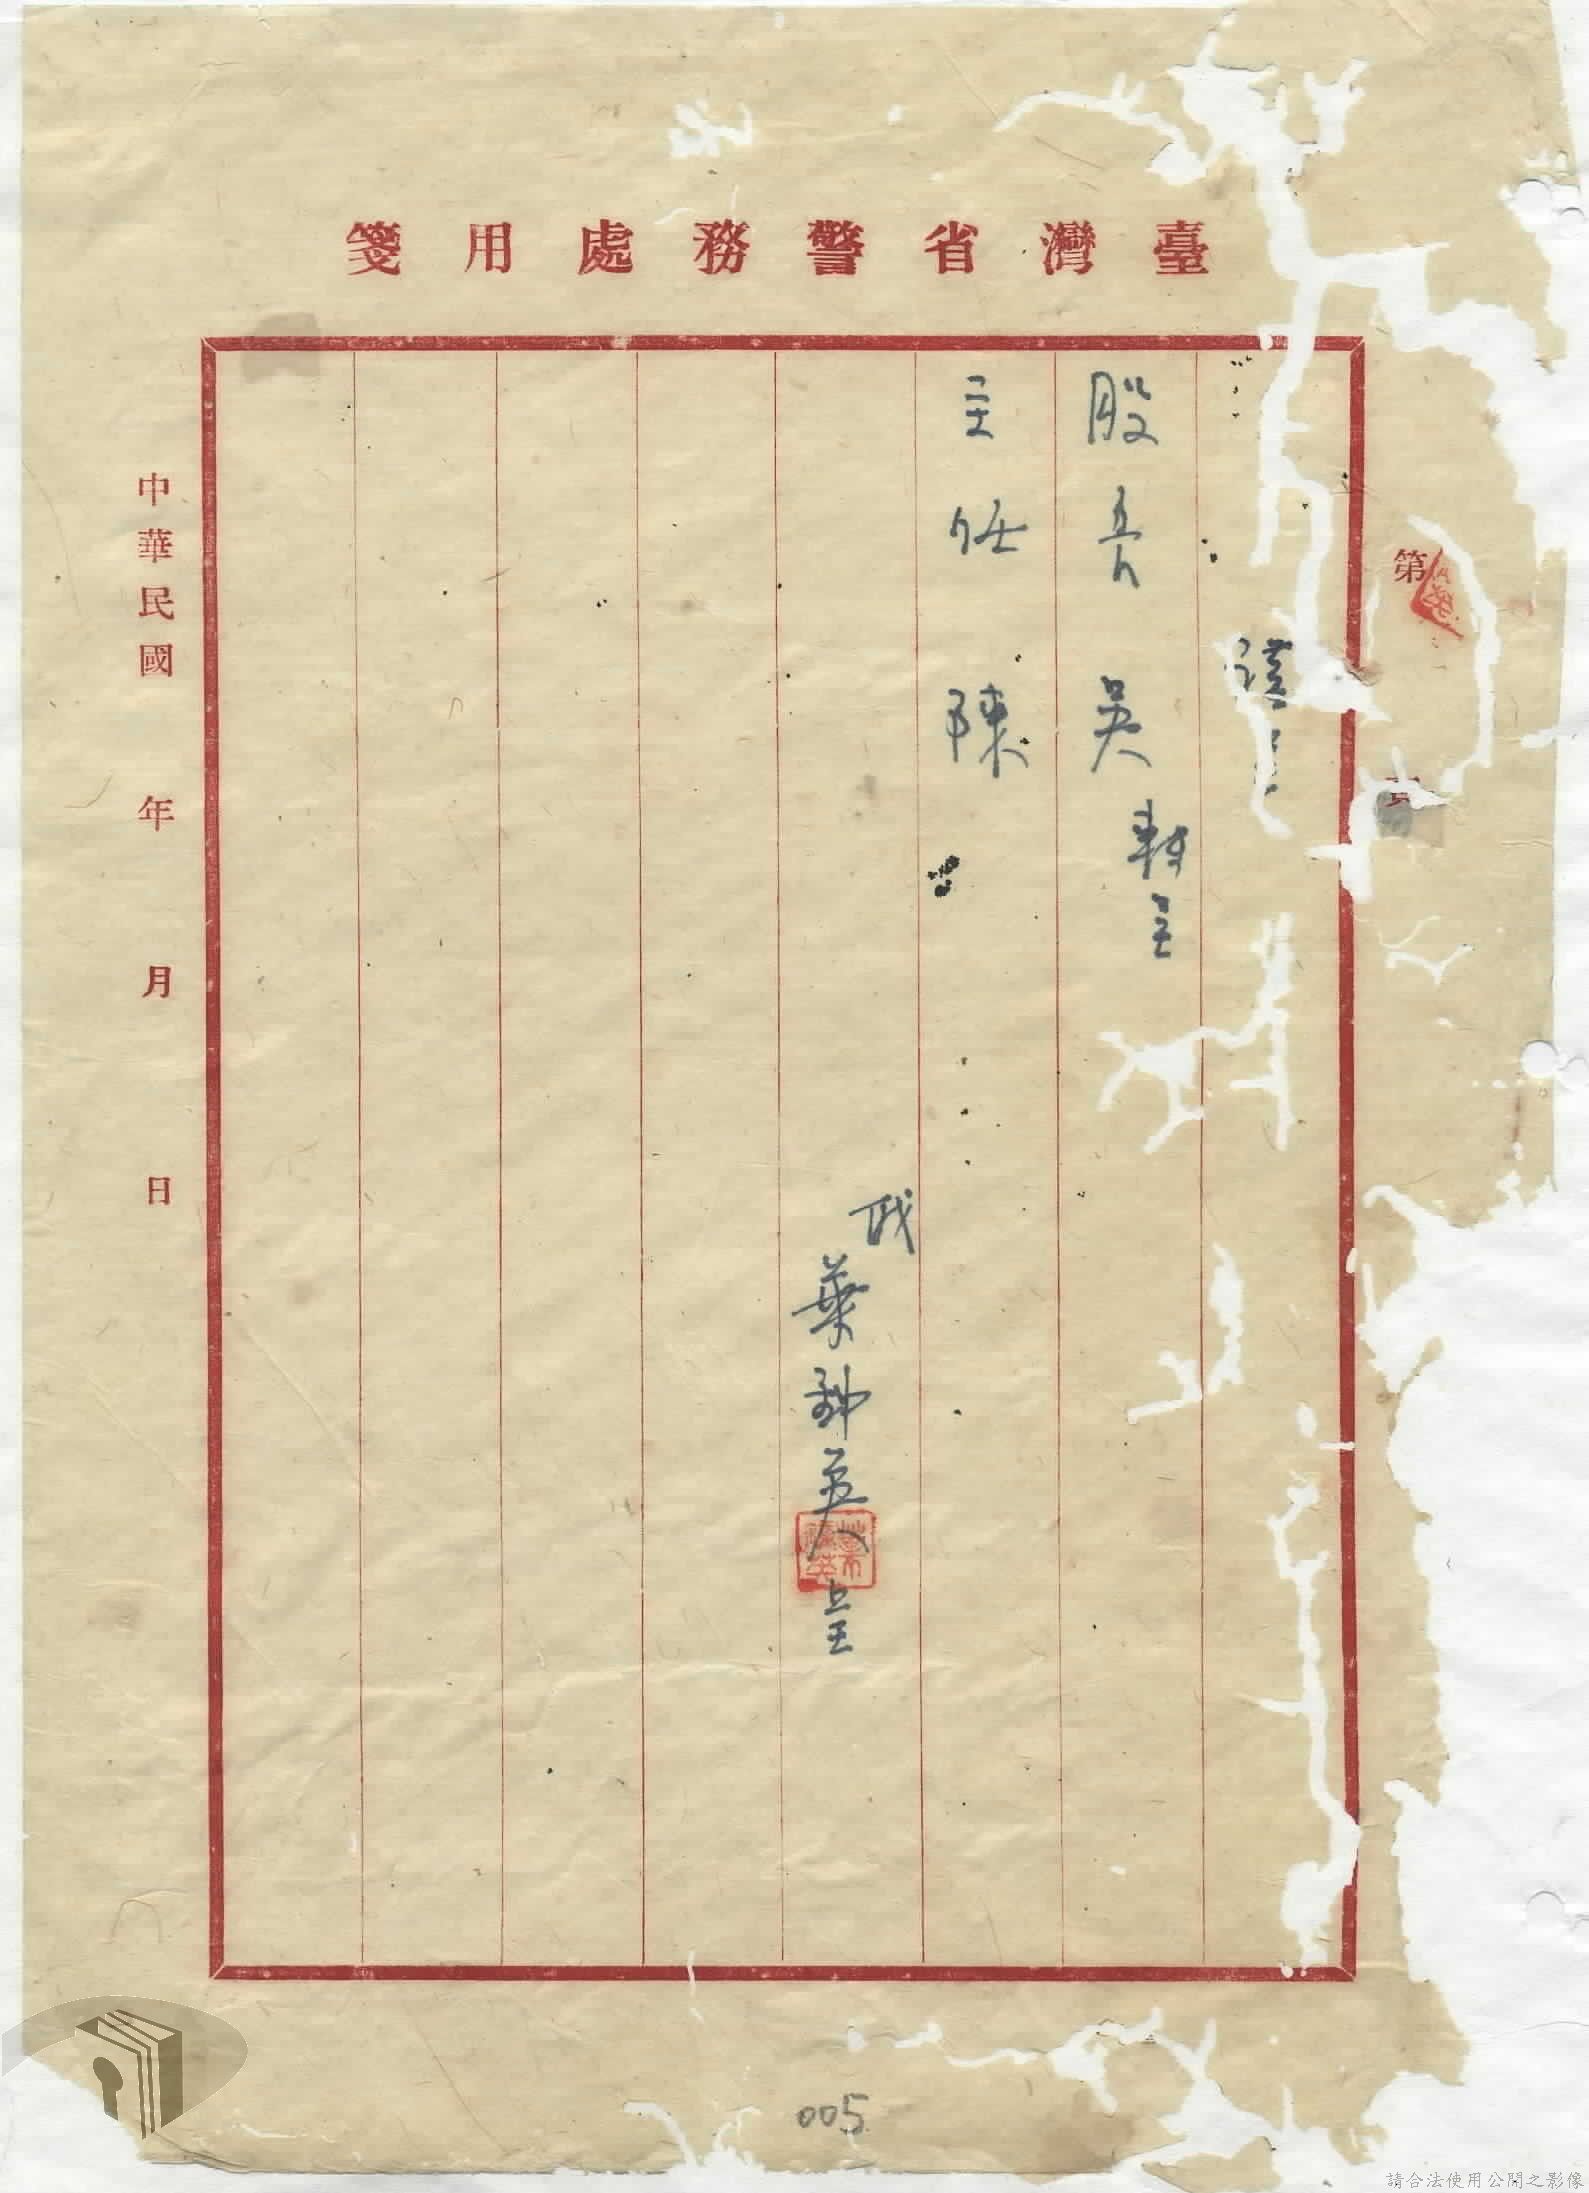 臺灣省警務處用箋
第 頁
謹呈
股長 吳 轉呈
主任 陳
職
葉 英呈
中華民國 年 月 日
005
請合法使用公開之影像